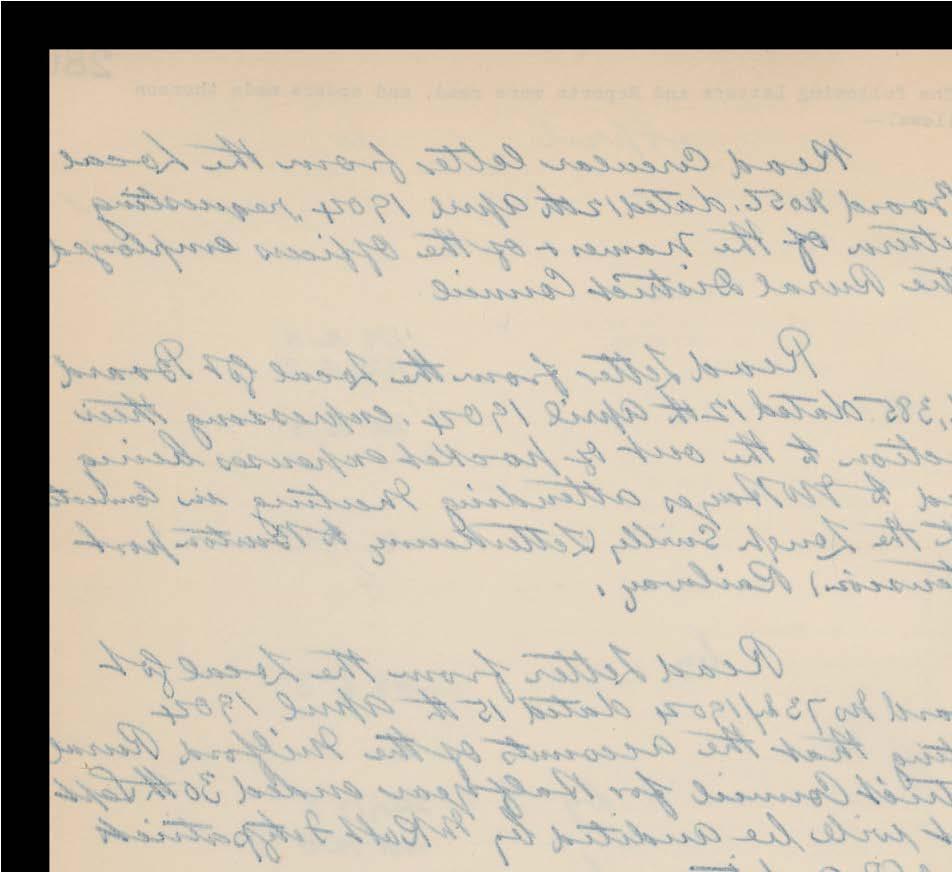 28
The following Letters and Reports were read, and orders made thereon
llows:-
Read Circular letter from the Local
Board No 56. dated 12th April 1904 requesting
eturn of the names & of the Officers employed
the Rural District Council
Read Letter from the Local Govt Board
,385. dated 12th April 1904, expressing their
ction to the out of pocket expenses being
d to Mr Hayes attending Meeting in
t the Lough Swilly Letterkenny to Burton port
tension) Railway.
Read Letter from the Local Govt
ard No dated 15th April 1904
ting that the accounts of the Milford Rural
trict Council for Half year ended 30th Sept
t will be audited by Fitzpatrick